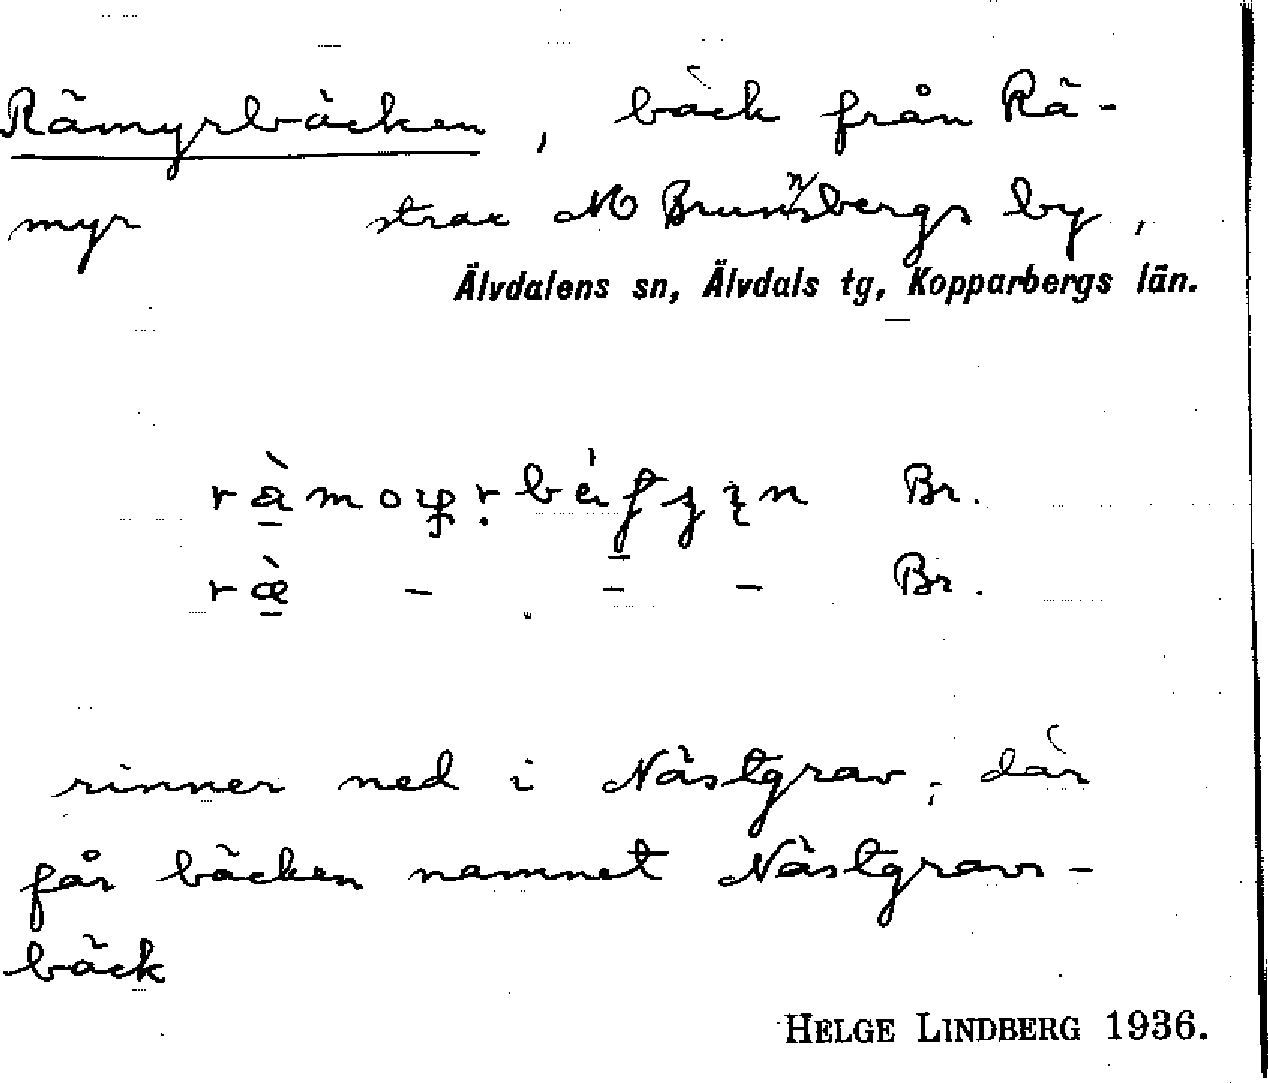 Rämyrbäcken, bäck från Rä-
myr strax N Brunnsbergs by,
Älvdalens sn, Älvdals tg, Kopparbergs län.
Br.
ræ̀ - - - Br.
rinner ned i Nästgrav, där
får bäcken namnet Nästgravs-
bäck
HELGE LINDBERG 1936.